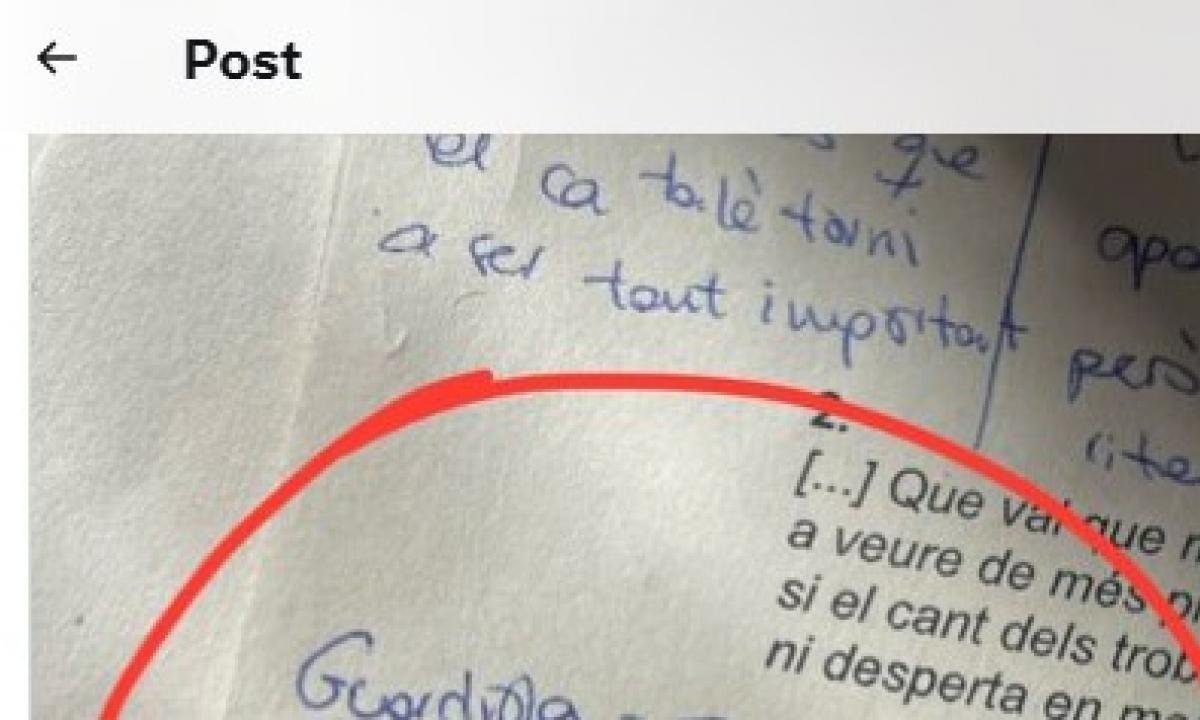 Post
el que
ca talè torni
a ser tout important
però
2.
[...] Que val que
a veure de més
si el cant dels trob
ni desperta en
Guardiola